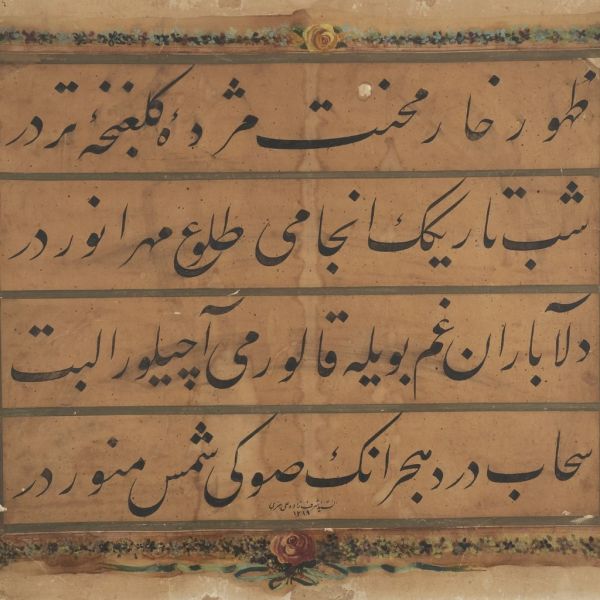 ظهور خار محنت مژدهٔ كلغنچهٔ تردر
شب تاريكك انجامی طلوع مهر انوردر
دلا باران غم بويله قالورمی آچيلور البت
سحاب درد هجرانك صوكی شمس منوردر
١٣١٩